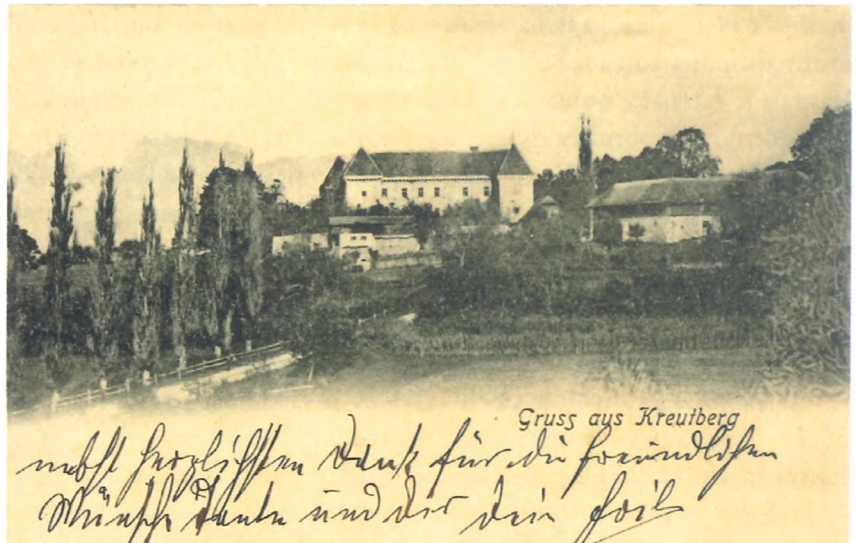 Gruss aus Kreutberg
nebst herzlichsten Dank für die freundlichen
Wünsche Tante und der Dein